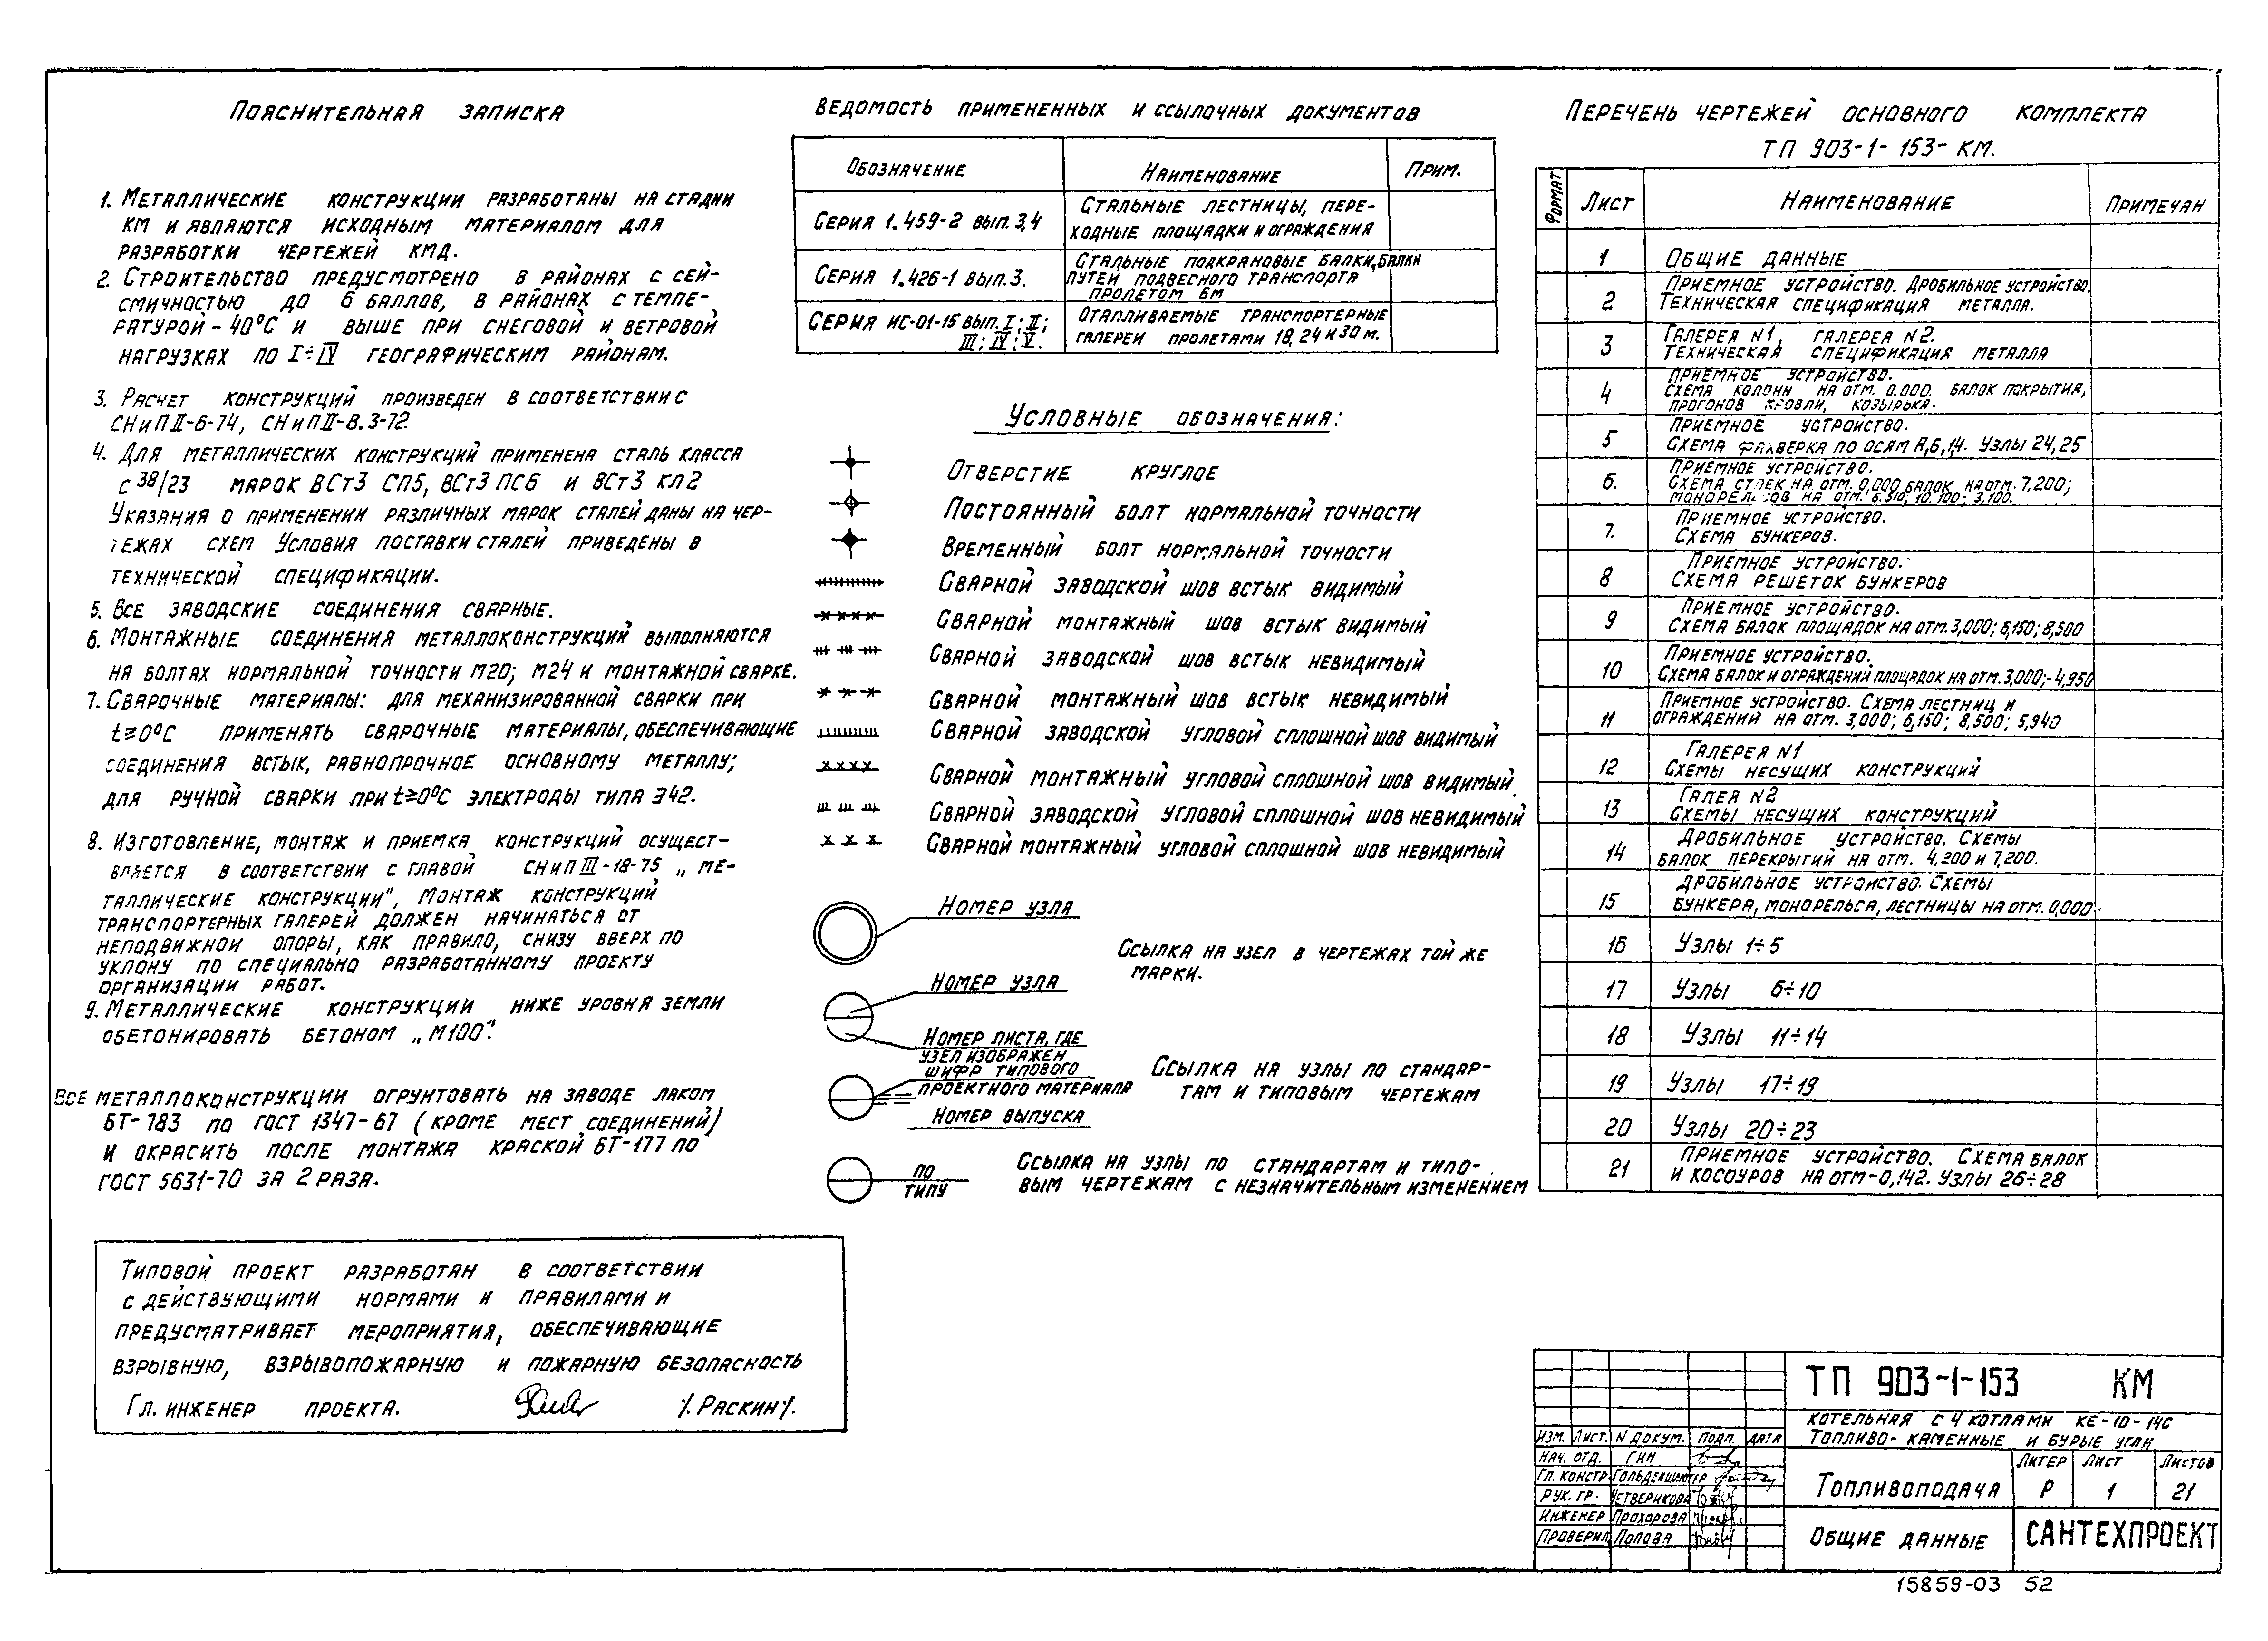 Пояснительная записка
1. Металлические конструкции разработаны на стадии
КМ и являются исходным материалом для
разработки чертежей КМД.
2. Строительство предусмотрено в районах с сей-
смичностью до 6 баллов, в районах с темпе-
ратурой -40°С и выше при снеговой и ветровой
нагрузках по I÷IV географическим районам.
3. Расчет конструкций произведен в соответствии с
СНиП II-6-74, СНиП II-В.3-72.
4. Для металлических конструкций применена сталь класса
С 38/23 марок ВСт3 СП5, ВСт3 ПС6 и ВСт3 КП2
Указания о применении различных марок сталей даны на чер-
тежах схем Условия поставки сталей приведены в
технической спецификации.
5. Все заводские соединения сварные.
6. Монтажные соединения металлоконструкций выполняются
на болтах нормальной точности М20; М24 и монтажной сварке.
7. Сварочные материалы: для механизированной сварки при
t≥0°С применять сварочные материалы, обеспечивающие
соединения встык, равнопрочное основному металлу;
для ручной сварки при t≥0°С электроды типа Э42.
8. Изготовление, монтаж и приемка конструкций осущест-
вляется в соответствии с главой СНиП III-18-75 „Ме-
таллические конструкции", монтаж конструкций
транспортерных галерей должен начинаться от
неподвижной опоры, как правило, снизу вверх по
уклону по специально разработанному проекту
организации работ.
9. Металлические конструкции ниже уровня земли
обетонировать бетоном „М100".
Все металлоконструкции огрунтовать на заводе лаком
БТ-783 по ГОСТ 1347-67 (кроме мест соединений)
и окрасить после монтажа краской БТ-177 по
ГОСТ 5631-70 за 2 раза.
Типовой проект разработан в соответствии
с действующими нормами и правилами и
предусматривает мероприятия, обеспечивающие
взрывную, взрывопожарную и пожарную безопасность
Гл. инженер проекта. /Раскин/.
Ведомость примененных и ссылочных документов
Обозначение Наименование Прим.
Серия 1.459-2 вып. 3,4 Стальные лестницы, пере-
ходные площадки и ограждения
Серия 1.426-1 вып. 3. Стальные подкрановые балки, балки
путей подвесного транспорта
пролетом 6м
Серия ИС-01-15 вып. I; II;
III; IV; V. Отапливаемые транспортерные
галереи пролетами 18, 24 и 30 м.
Условные обозначения:
Отверстие круглое
Постоянный болт нормальной точности
Временный болт нормальной точности
Сварной заводской шов встык видимый
Сварной монтажный шов встык видимый
Сварной заводской шов встык невидимый
Сварной монтажный шов встык невидимый
Сварной заводской угловой сплошной шов видимый
Сварной монтажный угловой сплошной шов видимый.
Сварной заводской угловой сплошной шов невидимый
Сварной монтажный угловой сплошной шов невидимый
Номер узла
Ссылка на узел в чертежах той же
марки.
Номер узла
Номер листа, где
узел изображен
шифр типового
проектного материала
Номер выпуска
Ссылка на узлы по стандар-
там и типовым чертежам
по
типу
Ссылка на узлы по стандартам и типо-
вым чертежам с незначительным изменением
Перечень чертежей основного комплекта
ТП 903-1-153-КМ.
Формат Лист Наименование Примечан
1 Общие данные
2 Приемное устройство. Дробильное устройство,
Техническая спецификация металла.
3 Галерея N1, галерея N2.
Техническая спецификация металла
4 Приемное устройство.
Схема колонн на отм. 0.000. балок покрытия,
прогонов кровли, козырька.
5 Приемное устройство.
Схема фахверка по осям А,Б,1,4. Узлы 24,25
6. Приемное устройство.
Схема стоек на отм. 0,000 балок на отм. 7,200;
монорельсов на отм. 6.510; 10.100; 3,100.
7. Приемное устройство.
Схема бункеров.
8 Приемное устройство.
Схема решеток бункеров
9 Приемное устройство.
Схема балок площадок на отм. 3,000; 6,150; 8,500
10 Приемное устройство.
Схема балок и ограждений площадок на отм. 3,000; -4,950
11 Приемное устройство. Схема лестниц и
ограждений на отм. 3,000; 6,150; 8,500; 5,940
12 Галерея N1
Схемы несущих конструкций
13 Галея N2
Схемы несущих конструкций
14 Дробильное устройство. Схемы
балок перекрытий на отм. 4.200 и 7,200.
15 Дробильное устройство. Схемы
бункера, монорельса, лестницы на отм. 0,000
16 Узлы 1÷5
17 Узлы 6÷10
18 Узлы 11÷14
19 Узлы 17÷19
20 Узлы 20÷23
21 Приемное устройство. Схема балок
и косоуров на отм -0,142. Узлы 26÷28
ТП 903-1-153 КМ
Котельная с 4 котлами КЕ-10-14С
Топливо- каменные и бурые угли
Изм. Лист. N докум. Подп. Дата
Нач. отд. Гин
Гл. констр. Гольденштегер
Рук. гр. Четверикова
Инженер Прохорова
Проверил Попова
Топливоподача
Литер Лист Листов
Р 1 21
Общие данные
САНТЕХПРОЕКТ
15859-03 52